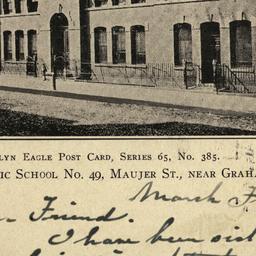 LYN EAGLE POST CARD, SERIES 65, No. 385.
IC SCHOOL No. 49, MAUJER ST., NEAR GRAH
March
Friend.
I have been